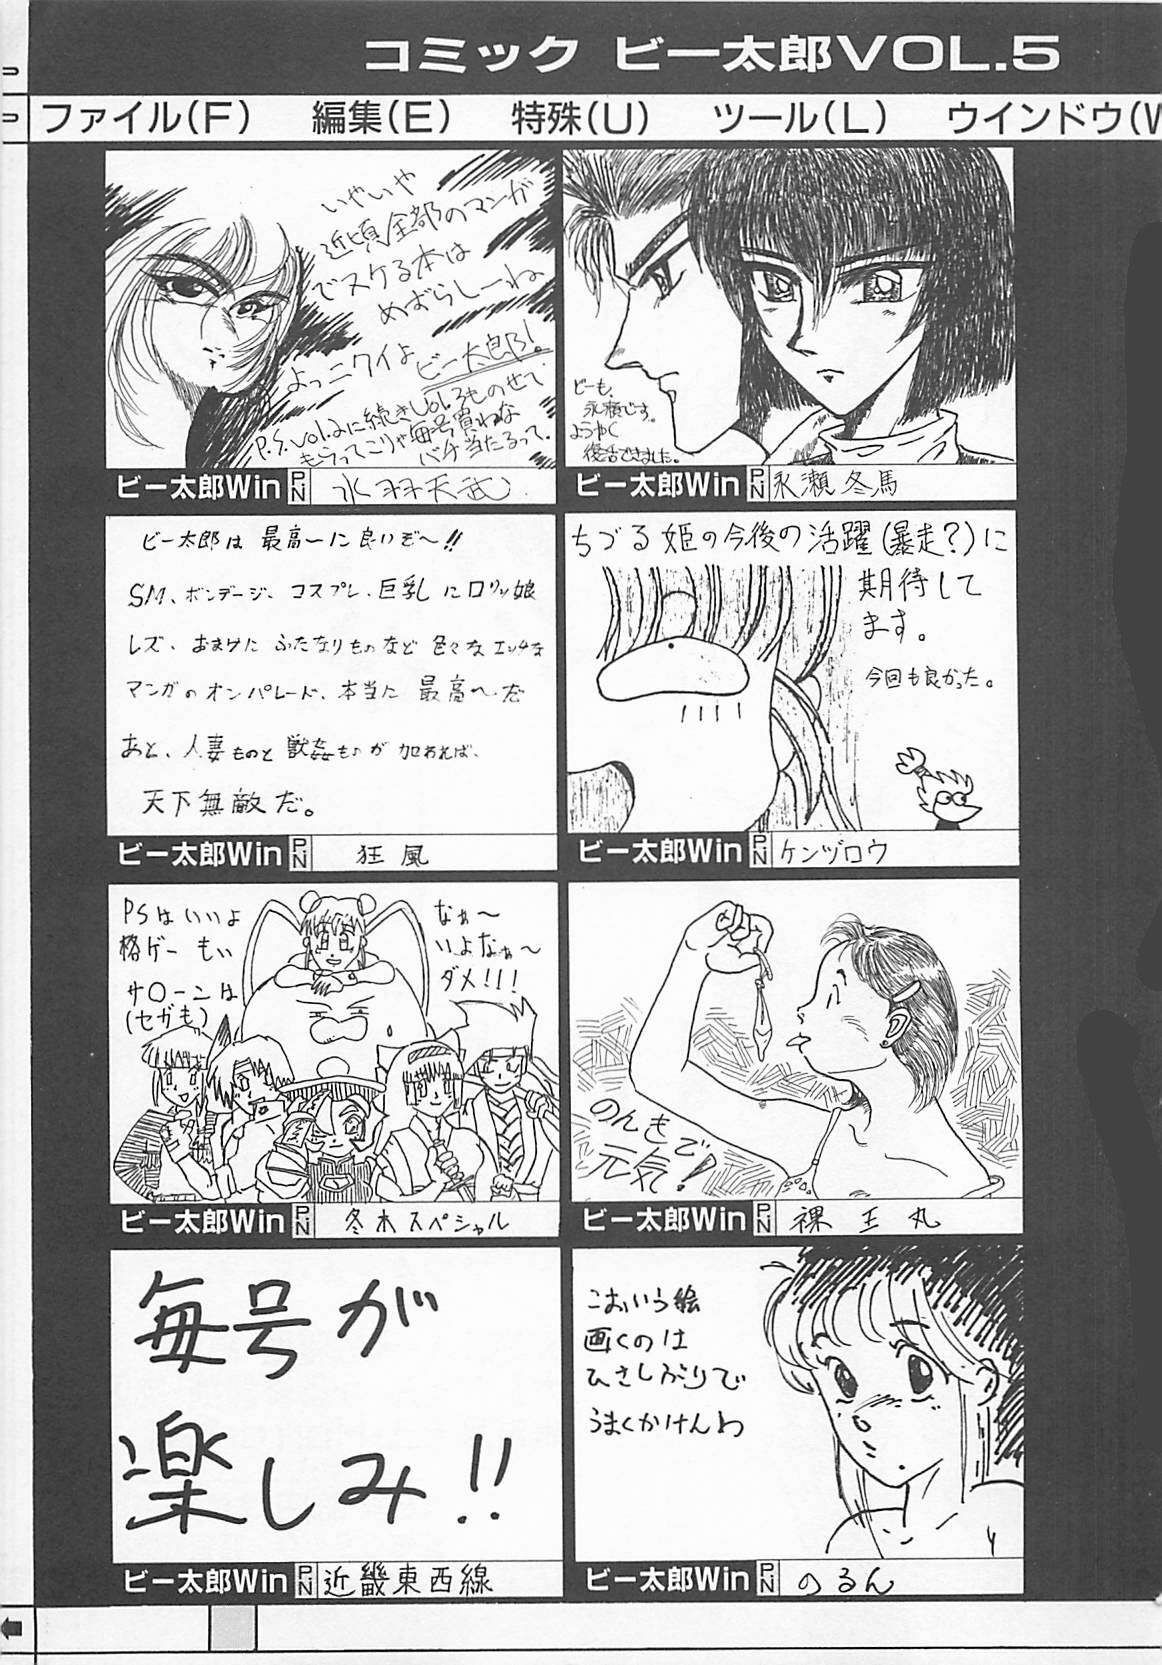 コミック ビー太郎VOL.5
ファイル(F) 編集(E) 特殊(U) ツール(L) ウインドウ(W
いやいや
近頃全部のマンガ
でスケる本は
めずらしーね
よっニクイよ ビー太郎!
P.S. Vol.2に続きVol.3ものせて
もらってこりゃ毎号買わな
バチ当たるって.
ビー太郎Win PN 水羽天武
どーも、
永瀬です。
ようやく
復活できました。
ビー太郎Win PN 永瀬冬馬
ビー太郎は 最高〜に良いぞ〜!!
SM、ボンデージ、コスプレ、巨乳にロリッ娘
レズ、おまけに ふたなりものなど 色々なエッチな
マンガのオンパレード、本当に 最高〜だ
あと、人妻ものと 獣姦ものが 加われば、
天下無敵だ。
ビー太郎Win PN 狂風
ちづる姫の今後の活躍(暴走?)に
期待して
ます。
今回も良かった。
ビー太郎Win PN ケンヅロウ
PSはいいよ
格ゲーもい
サローンは
(セガも)
なぁ〜
いよなぁ〜
ダメ!!!
ビー太郎Win PN 冬木スペシャル
のんきで
元気!
ビー太郎Win PN 裸王丸
毎号が
楽しみ!!
ビー太郎Win PN 近畿東西線
こおいう絵
画くのは
ひさしぶりで
うまくかけんわ
ビー太郎Win PN のるん